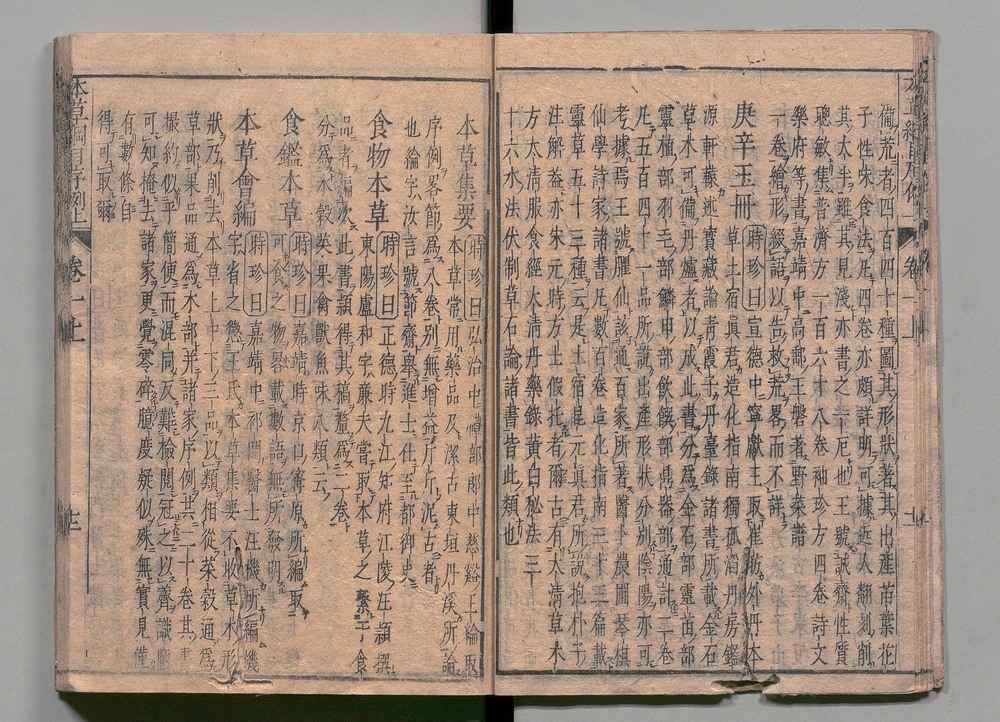 備荒者四百四十種圖其形狀著其出產苗葉花
子性味食法凡四卷亦頗詳明可據近人翻刻削
其大半雖其見淺亦書之一厄也王號誠齋性質
聰敏集普濟方一百六十八卷袖珍方四卷詩文
樂府等書嘉靖中高郵王磐著野菜譜
一卷繪形綴語以告救荒畧而不詳
庚辛玉冊時珍曰宣德中寧獻王取崔昉外丹本
草土宿眞君造化指南獨孤滔丹房鑑
源軒轅述寶藏論靑霞子丹臺錄諸書所載金石
草木可備丹爐者以成此書分爲金石部靈苗部
靈植部羽毛部鱗甲部飮饌部鼎器部通計二卷
凡五百四十一品所說出產形狀分別陰陽亦可
考據焉王號臞仙該通百家所著醫卜農圃琴棋
仙學詩家諸書凡數百卷造化指南三十三篇載
靈草五十三種云是土宿昆元眞君所說抱朴子
注解蓋亦宋元時方士假托者爾古有太淸草木
方太淸服食經太淸丹藥錄黃白秘法三十
十六水法伏制草石論諸書皆此類也
本草集要時珍曰弘治中禮部郎中慈谿王綸取
本草常用藥品及潔古東垣丹溪所論
序例畧節爲八卷別無增益斤斤泥古者
也綸字汝言號節齋舉進士仕至都御史
食物本草時珍曰正德時九江知府江陵汪穎撰
東陽盧和字廉夫嘗取本草之繫于食
品者編次此書穎得其稿釐爲二卷
分爲水穀菜果禽獸魚味八類云
食鑑本草時珍曰嘉靖時京口寧原所編取
可食之物畧載數語無所發明
本草會編時珍曰嘉靖中祁門醫士汪機所編機
字省之懲王氏本草集要不收草木形
狀乃削去本草上中下三品以類相從菜穀通爲
草部果品通爲木部并諸家序例共二十卷其書
撮約似乎簡便而混同反難檢閱冠之以薺識陋
可知掩去諸家更覺零碎臆度疑似殊無實見僅
有數條自
得可取爾
本草綱目序例上
卷一上